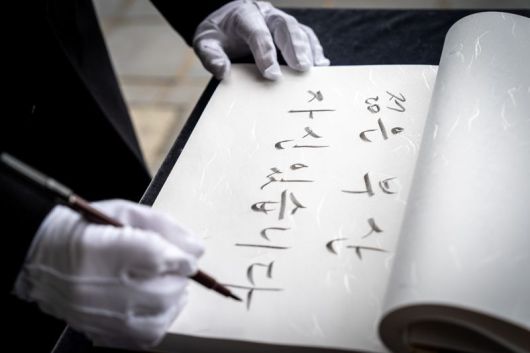 젊은 부산
자신있습니다